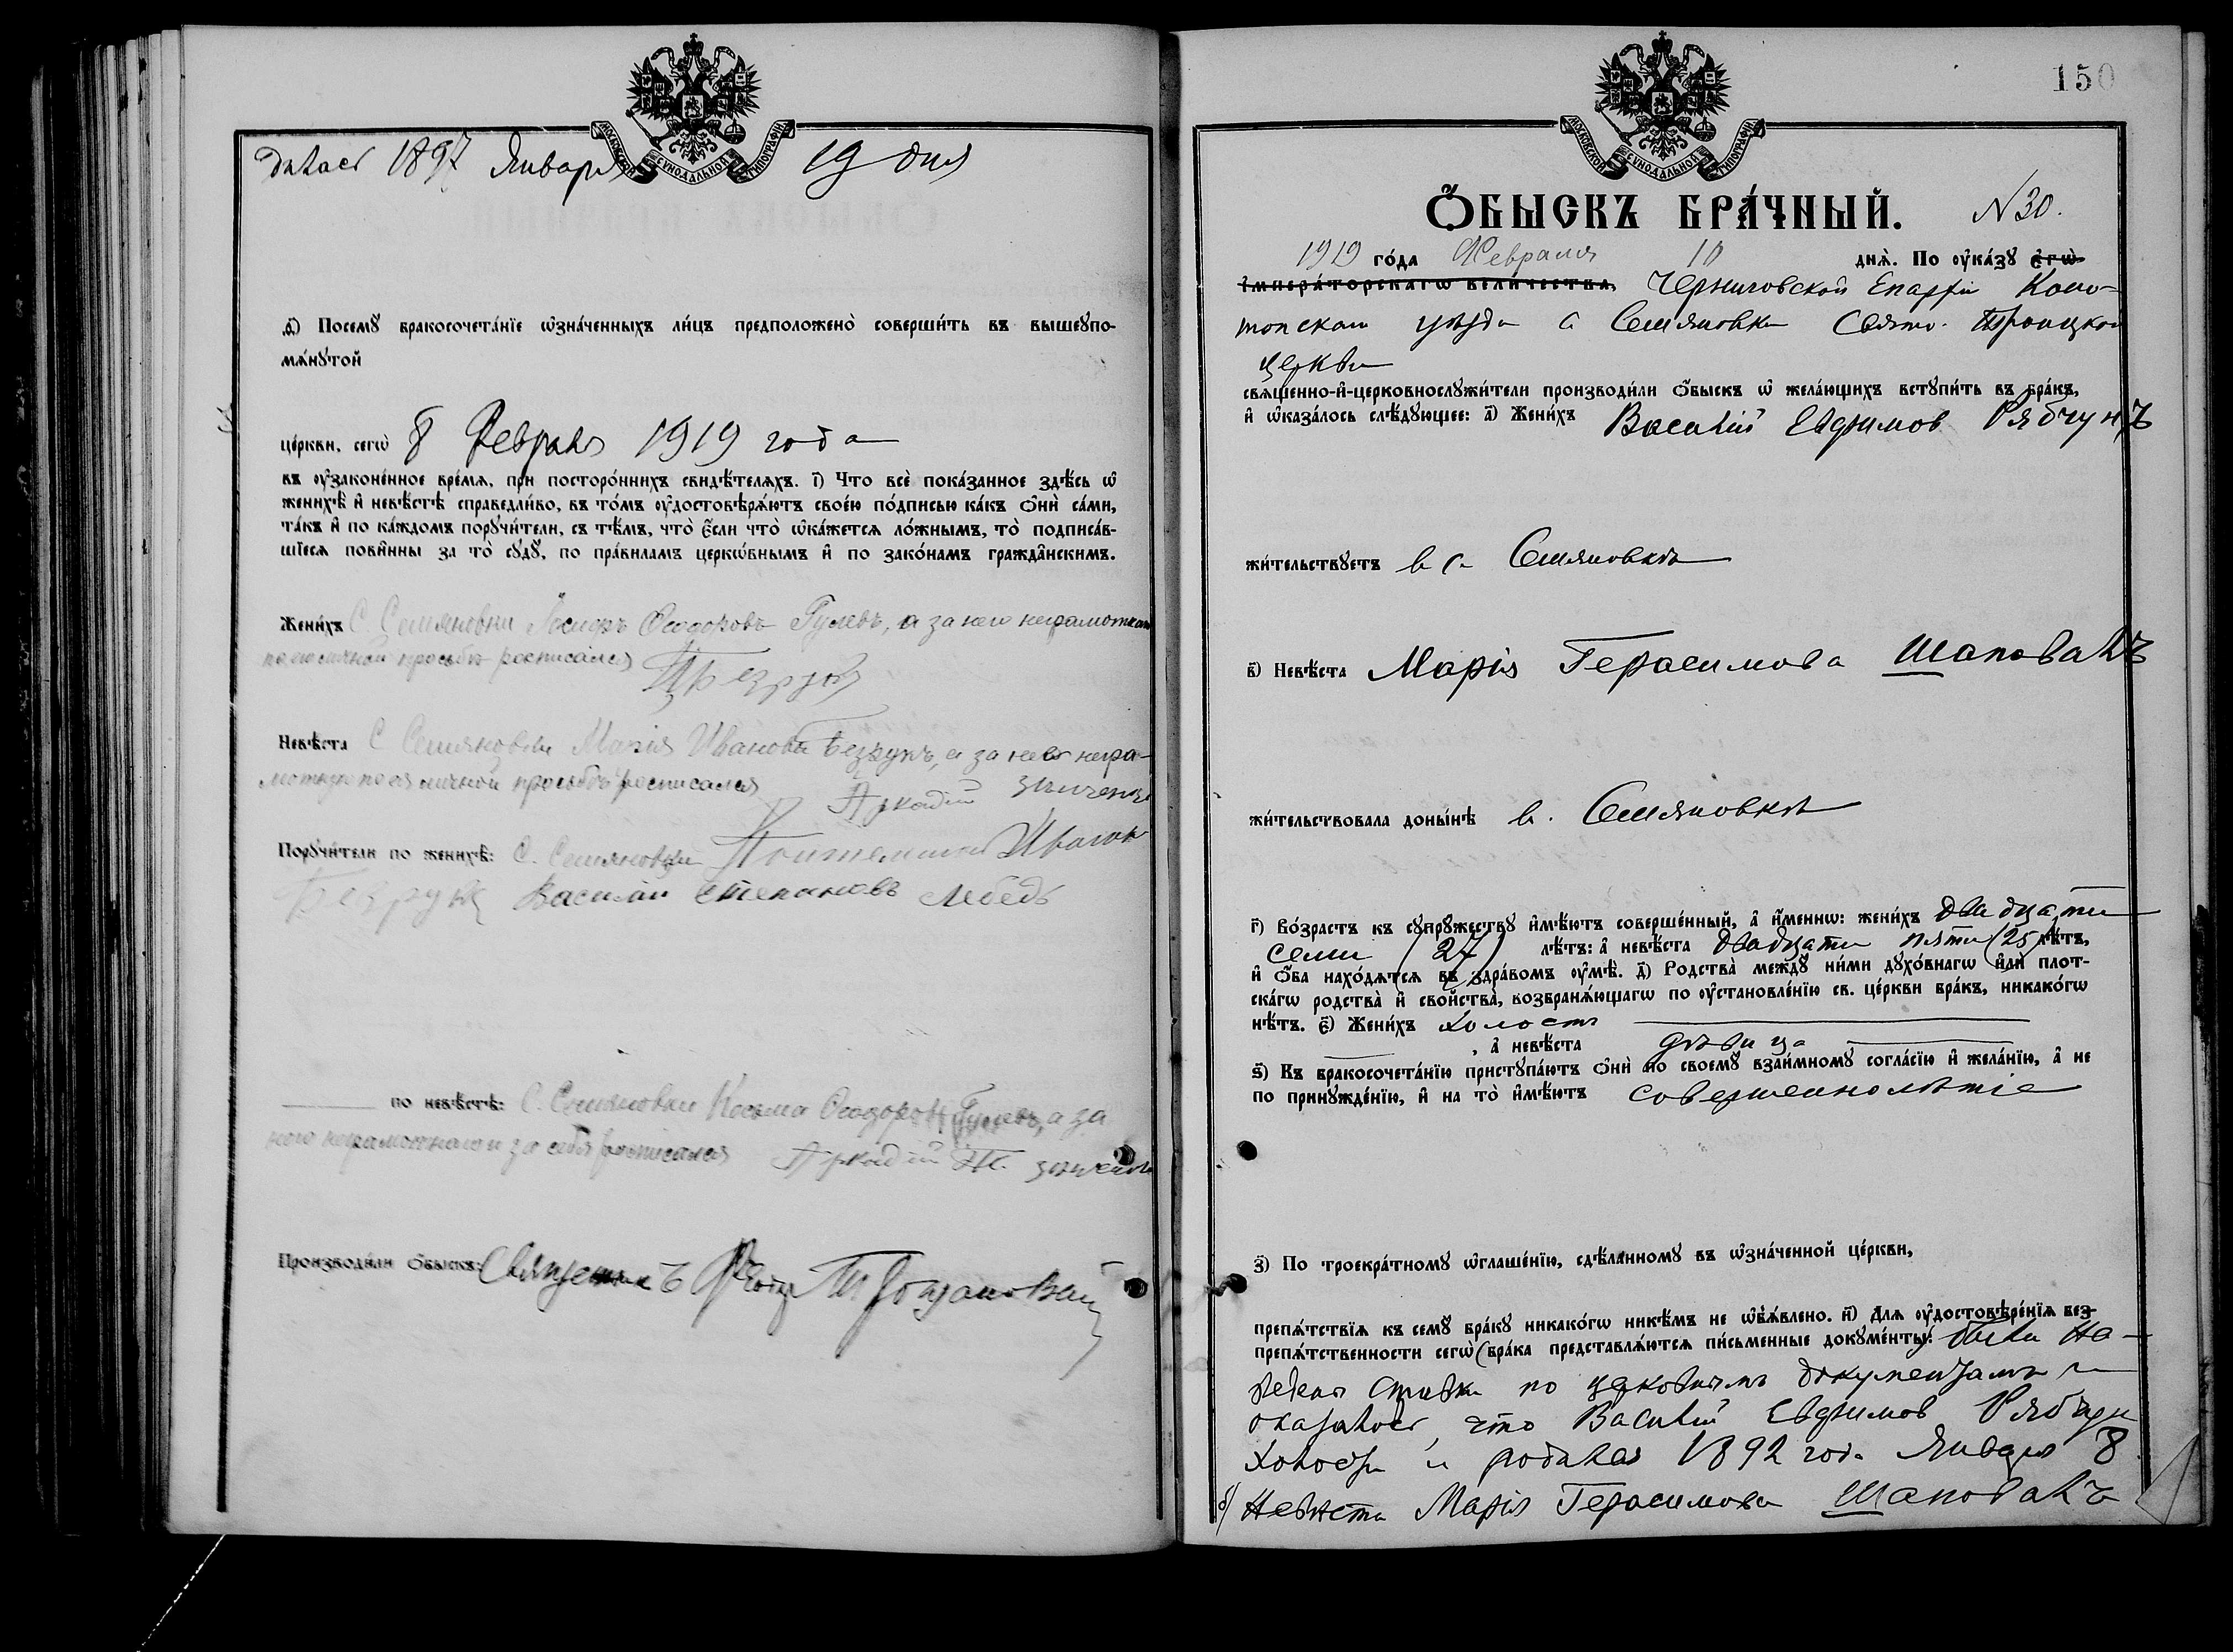 МОСКОВСКОЙ СѴНОДАЛЬНОЙ ТИПОГРАФІИ
1897 Января 19 дня
Посемꙋ бракосочета́нїе ѡ҆зна́ченныхъ ли́цъ предположено̀ соверши́ть въ вышеꙋпо-
мѧ́нꙋтой
це́ркви, сегѡ̀ 8 Февраля 1919 года
въ ᲂу҆зако́ненное вре́мѧ, при посторо́ннихъ свидѣ́телѧхъ. і҃) Что всѐ пока́занное здѣ́сь ѡ҆
женихѣ̀ и҆ невѣ́стѣ справедли́во, въ то́мъ ᲂу҆достовѣрѧ́ютъ свое́ю по́дписью ка́къ ѻ҆нѝ са́ми,
та́къ и҆ по ка́ждомъ порꙋчи́тели, съ тѣ́мъ, что̀ є҆́сли что̀ ѡ҆ка́жется ло́жнымъ, то̀ подписа́в-
шїесѧ пови́нны за то̀ сꙋдꙋ̀, по пра́виламъ церко́внымъ и҆ по зако́намъ гражда́нскимъ.
Жени́хъ С. Семяновки Іосифъ Ѳеодоровъ Гулевъ, а за него неграмотнаго
по его личной просьбѣ росписался
Невѣ́ста С Семяновки Марія Иванова Безрукъ, а за нее негра-
мотную по ея личной просьбѣ росписался Аркадій
Порꙋчи́тели по женихѣ̀: С. Семяновки Иванов
Безрук Василій Степановъ Лебедь
по невѣ́стѣ: С. Семяновки Косьма Ѳеодоровъ Гулевъ, а за
него неграмотнаго и за себя росписался Аркадій
Производи́ли ѻ҆́быскъ: Священникъ
150
МОСКОВСКОЙ СѴНОДАЛЬНОЙ ТИПОГРАФІИ
Ѻ҆́БЫСКЪ БРА́ЧНЫЙ. N 30.
1919 го́да Февраля 10 днѧ̀. По ᲂу҆ка́зꙋ є҆гѡ̀
і҆мпера́торскагѡ вели́чества, Черниговской Епархіи Коно-
топскаго уѣзда с Семяновки Свято-Троицкой
церкви
свѧще́нно-и҆-церковнослꙋжи́тели производи́ли ѻ҆́быскъ ѡ҆ жела́ющихъ встꙋпи́ть въ бра́къ,
и҆ ѡ҆каза́лось слѣ́дꙋющее: а҃) Жени́хъ Василій Евфимов Рябчунъ
жи́тельствꙋетъ в с. Семяновкѣ
в҃) Невѣ́ста Марія Герасимова Шаповалъ
жи́тельствовала доны́нѣ в. Семяновкѣ
г҃) Во́зрастъ къ сꙋпрꙋ́жествꙋ и҆мѣ́ютъ соверше́нный, а҆ и҆́менно: жени́хъ двадцати
семи (27) лѣ́тъ: а҆ невѣ́ста двадцати пяти (25) лѣ́тъ,
и҆ ѻ҆́ба нахо́дѧтсѧ въ здра́вомъ ᲂу҆мѣ̀. д҃) Родства̀ междꙋ̀ ни́ми дꙋхо́внагѡ и҆лѝ плот-
ска́гѡ родства̀ и҆ свойства̀, возбранѧ́ющагѡ по ᲂу҆становле́нїю св. це́ркви бра́къ, никако́гѡ
нѣ́тъ. є҃) Жени́хъ холостъ
, а҆ невѣ́ста дѣвица
ѕ҃) Къ бракосочета́нїю пристꙋпа́ютъ ѻ҆нѝ по своемꙋ̀ взаи́мномꙋ согла́сїю и҆ жела́нїю, а҆ не
по принꙋжде́нїю, и҆ на то̀ и҆мѣ́ютъ совершеннолѣтіе
з҃) По троекра́тномꙋ ѡ҆глаше́нїю, сдѣ́ланномꙋ въ ѡ҆зна́ченной це́ркви,
препѧ́тствїѧ къ семꙋ̀ бра́кꙋ никако́гѡ никѣ́мъ не ѡ҆б̾ѧ́влено. и҃) Для ᲂу҆достовѣре́нїѧ без-
препѧ́тственности сегѡ̀ бра́ка представлѧ́ютсѧ пи́сьменные докꙋме́нты: были на-
ведены справки по церковнымъ документамъ и
оказалось, что Василій Евфимов Рябчун
холостъ и родился 1892 года Января 8
б) Невѣста Марія Герасимова Шаповалъ